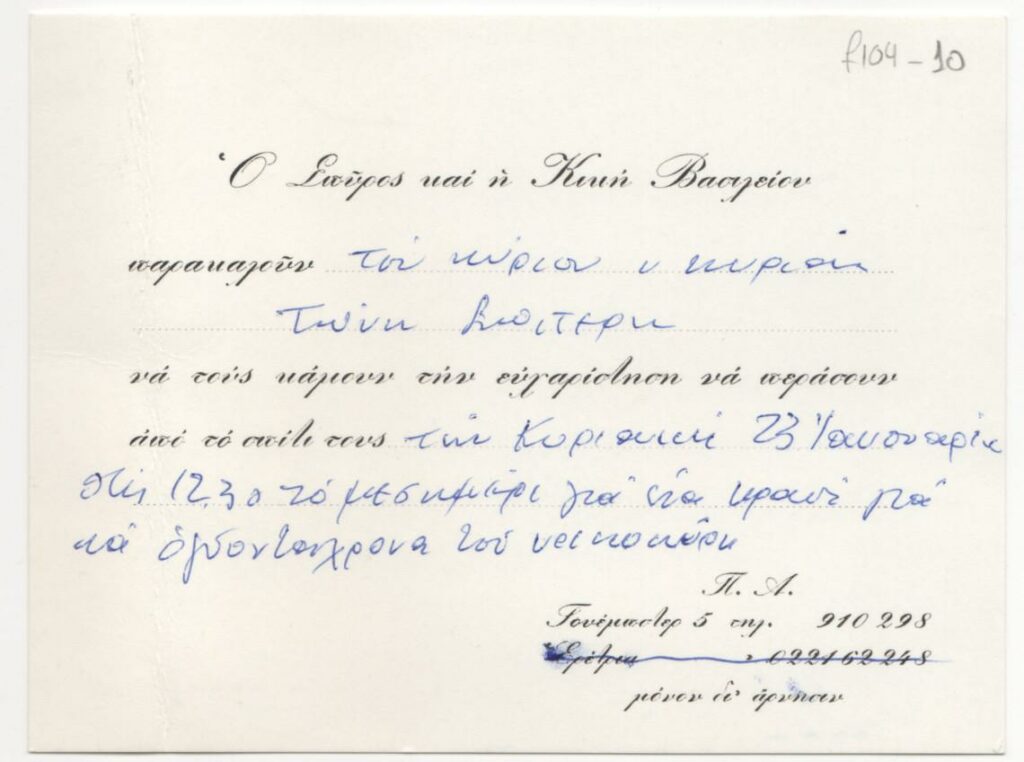 f104-10
Ὁ Σπῦρος καί ἡ Κική Βασιλείου
παρακαλοῦν τόν κύριον κ κυρίαν
Τώνη Σπητέρη
νά τούς κάμουν τήν εὐχαρίστηση νά περάσουν
ἀπό τό σπίτι τους τήν Κυριακή 23 Ἰανουαρίου
στίς 12.30 τό μεσημέρι γιά ἕνα κρασί γιά
τά ὀγδοντάχρονα τοῦ νοικοκύρη
Π. Α.
Γουέμπστερ 5 τηλ. 910298
Ἐρέτρια » 0221 62248
μόνον δι' ἄρνησιν